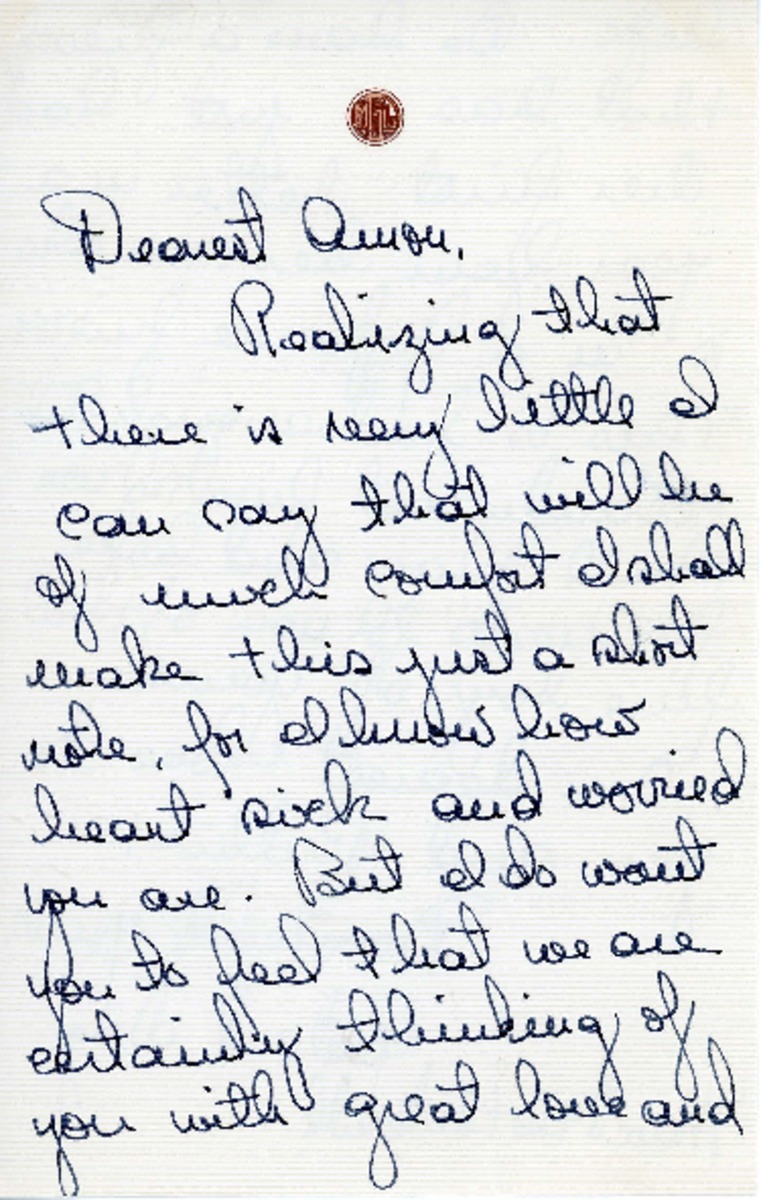 Dearest Amon,
Realizing that
there is very little I
can say that will be
of much comfort I shall
make this just a short
note, for I know how
heart sick and worried
you are. But I do want
you to feel that we are
certainly thinking of
you with great love and